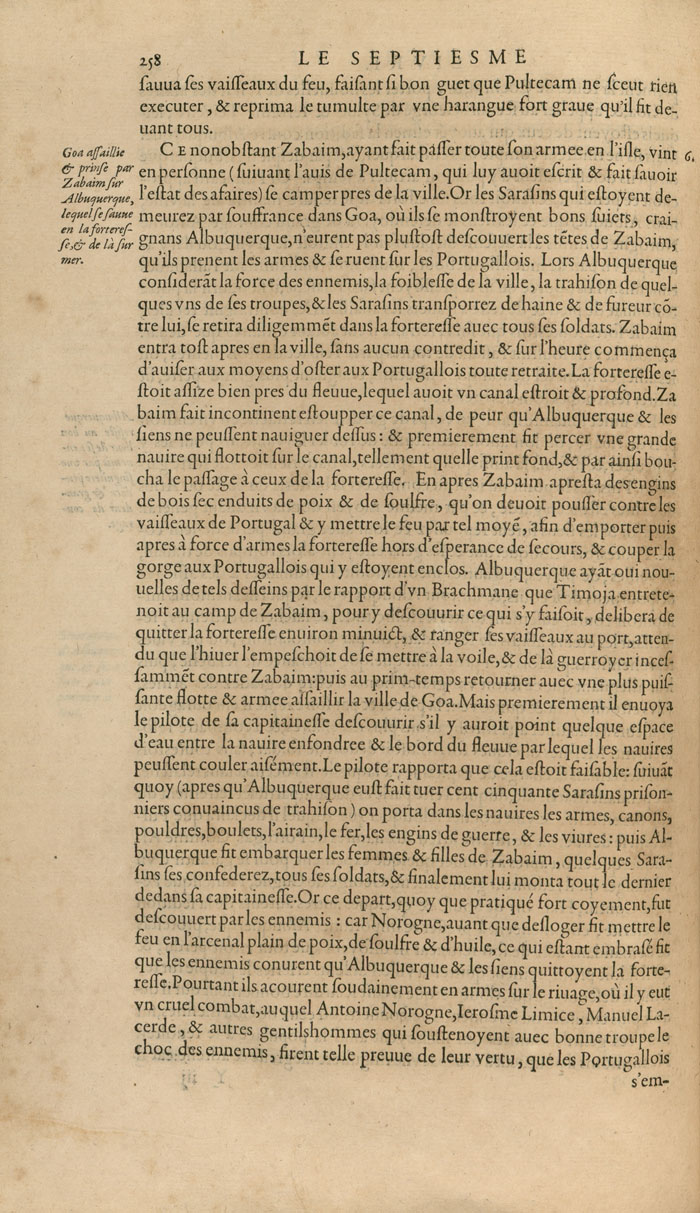 258 LE SEPTIESME
ſauua ſes vaiſſeaux du feu, faiſant ſi bon guet que Pultecam ne ſceut rien
executer, & reprima le tumulte par vne harangue fort graue qu'il fit de-
uant tous.
Goa aſſaillie
& prinſe par
Zabaim ſur
Albuquerque,
lequel ſe ſauue
en la fortereſ-
ſe, & de là ſur
mer.
CE nonobſtant Zabaim, ayant fait paſſer toute ſon armee en l'iſle, vint
6.
en perſonne (ſuiuant l'auis de Pultecam, qui luy auoit eſcrit & fait ſauoir
l'eſtat des afaires) ſe camper pres de la ville. Or les Saraſins qui eſtoyent de-
meurez par ſouffrance dans Goa, où ils ſe monſtroyent bons ſuiets, crai-
gnans Albuquerque, n'eurent pas pluſtoſt deſcouuert les tẽtes de Zabaim,
qu'ils prenent les armes & ſe ruent ſur les Portugallois. Lors Albuquerque
conſiderãt la force des ennemis, la foibleſſe de la ville, la trahiſon de quel-
ques vns de ſes troupes, & les Saraſins tranſporrez de haine & de fureur cõ-
tre lui, ſe retira diligemmẽt dans la fortereſſe auec tous ſes ſoldats. Zabaim
entra toſt apres en la ville, ſans aucun contredit, & ſur l'heure commença
d'auiſer aux moyens d'oſter aux Portugallois toute retraite. La fortereſſe e-
ſtoit aſſize bien pres du fleuue, lequel auoit vn canal eſtroit & profond. Za
baim fait incontinent eſtoupper ce canal, de peur qu'Albuquerque & les
ſiens ne peuſſent nauiguer deſſus: & premierement fit percer vne grande
nauire qui flottoit ſur le canal, tellement quelle print fond, & par ainſi bou-
cha le paſſage à ceux de la fortereſſe. En apres Zabaim apreſta des engins
de bois ſec enduits de poix & de ſoulfre, qu'on deuoit pouſſer contre les
vaiſſeaux de Portugal & y mettre le feu par tel moyẽ, afin d'emporter puis
apres à force d'armes la fortereſſe hors d'eſperance de ſecours, & couper la
gorge aux Portugallois qui y eſtoyent enclos. Albuquerque ayãt oui nou-
uelles de tels deſſeins par le rapport d'vn Brachmane que Timoja entrete-
noit au camp de Zabaim, pour y deſcouurir ce qui s'y faiſoit, delibera de
quitter la fortereſſe enuiron minuict, & ranger ſes vaiſſeaux au port, atten-
du que l'hiuer l'empeſchoit de ſe mettre à la voile, & de là guerroyer inceſ-
ſammẽt contre Zabaim: puis au prim-temps retourner auec vne plus puiſ-
ſante flotte & armee aſſaillir la ville de Goa. Mais premierement il enuoya
le pilote de ſa capitaineſſe deſcouurir s'il y auroit point quelque eſpace
d'eau entre la nauire enfondree & le bord du fleuue par lequel les nauires
peuſſent couler aiſément. Le pilote rapporta que cela eſtoit faiſable: ſuiuãt
quoy (apres qu'Albuquerque euſt fait tuer cent cinquante Saraſins priſon-
niers conuaincus de trahiſon) on porta dans les nauires les armes, canons,
pouldres, boulets, l'airain, le fer, les engins de guerre, & les viures: puis Al-
buquerque fit embarquer les femmes & filles de Zabaim, quelques Sara-
ſins ſes confederez, tous ſes ſoldats, & finalement lui monta tout le dernier
dedans ſa capitaineſſe. Or ce depart, quoy que pratiqué fort coyement, fut
deſcouuert par les ennemis: car Norogne, auant que deſloger fit mettre le
feu en l'arcenal plain de poix, de ſoulfre & d'huile, ce qui eſtant embraſé fit
que les ennemis conurent qu'Albuquerque & les ſiens quittoyent la forte-
reſſe. Pourtant ils acourent ſoudainement en armes ſur le riuage, où il y eut
vn cruel combat, auquel Antoine Norogne, Ieroſme Limice, Manuel La-
cerde, & autres gentilshommes qui ſouſtenoyent auec bonne troupe le
choc des ennemis, firent telle preuue de leur vertu, que les Portugallois
s'em-